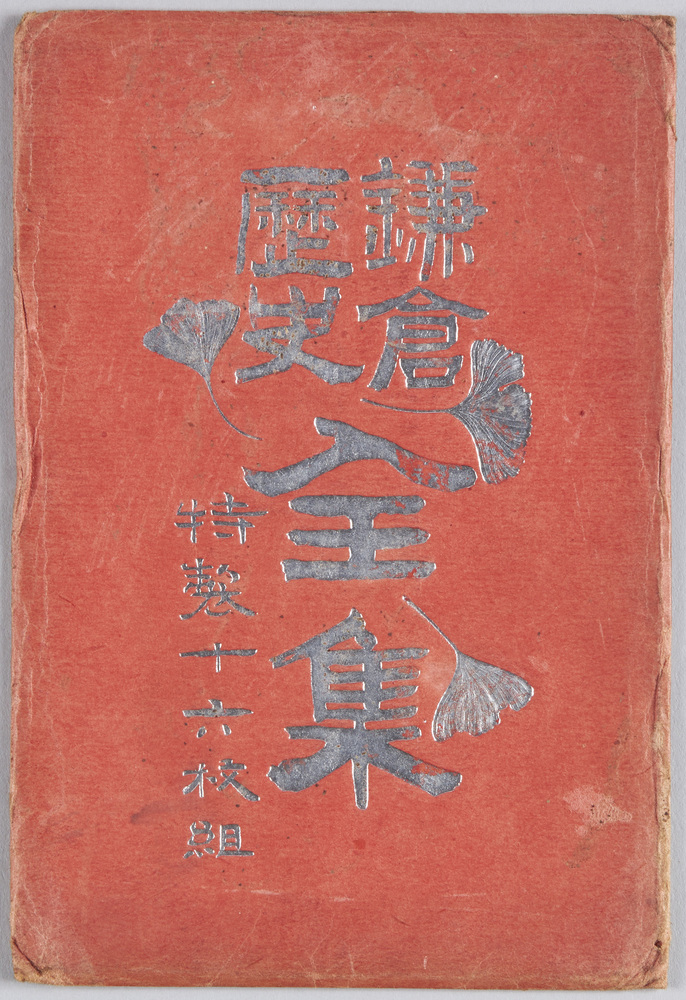 鎌倉
歴史
全集
特製十六枚組